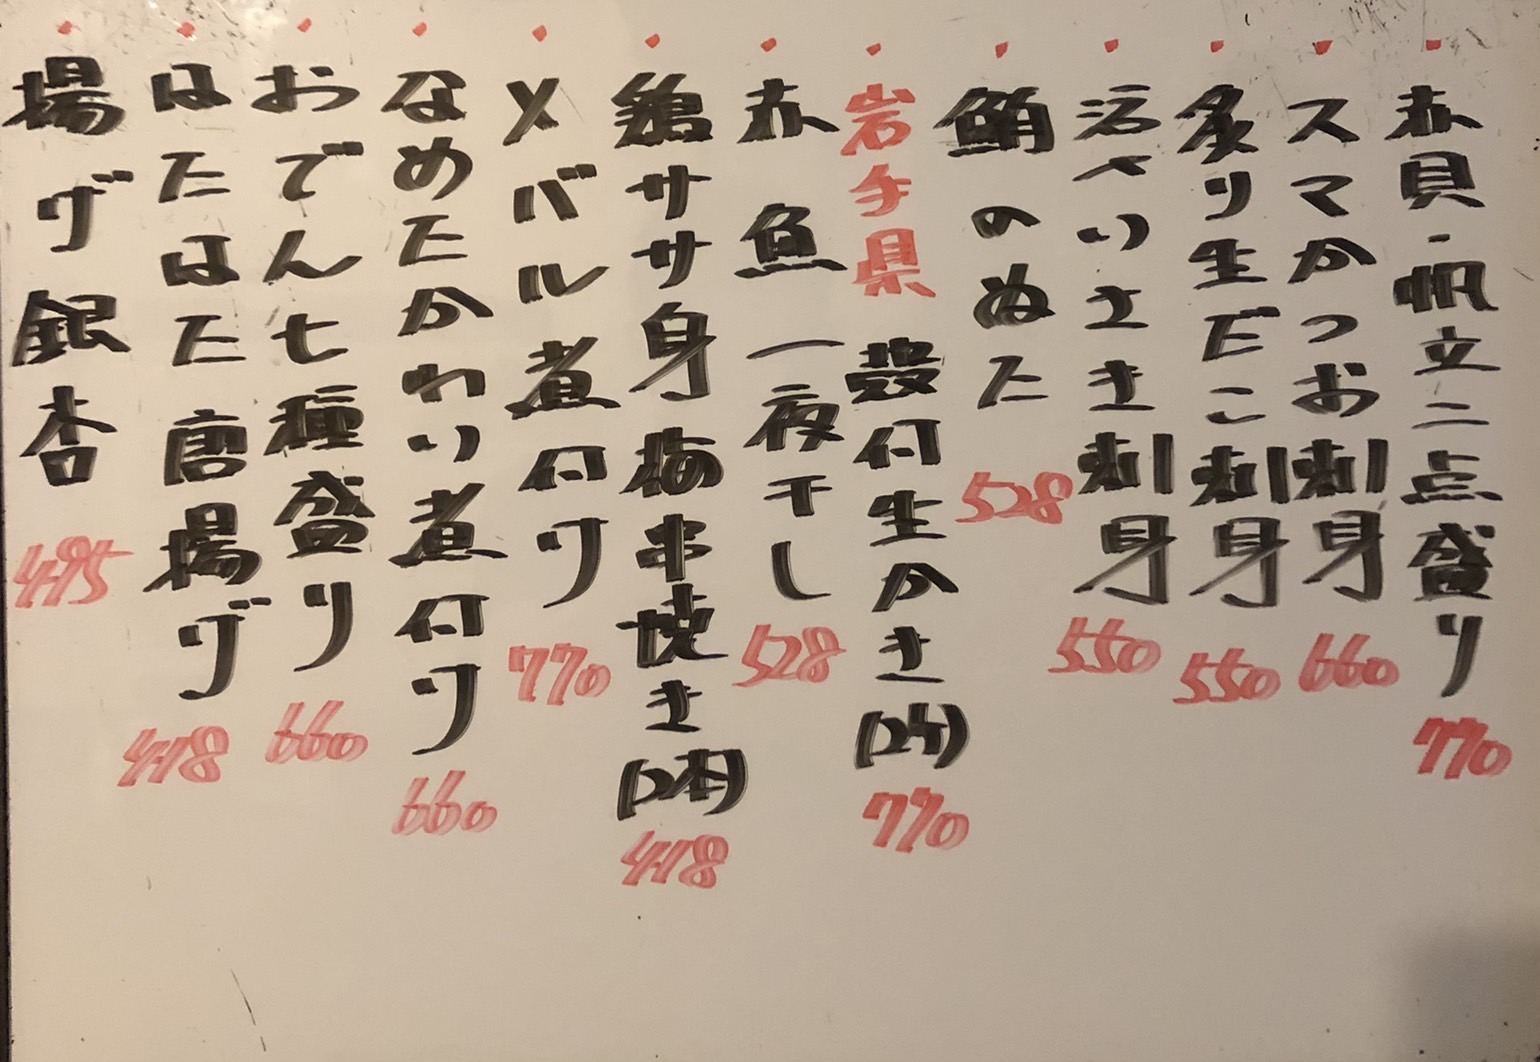 赤貝・帆立二点盛り 770
スマかつお刺身 660
炙り生だこ刺身 550
活〆いさき刺身 550
鮪のぬた 528
岩手県 殻付生かき(2ケ) 770
赤魚一夜干し 528
鶏ササ身梅串焼き(2本) 418
メバル煮付け 770
なめたかれい煮付け 660
おでん七種盛り 660
はたはた唐揚げ 418
揚げ銀杏 495